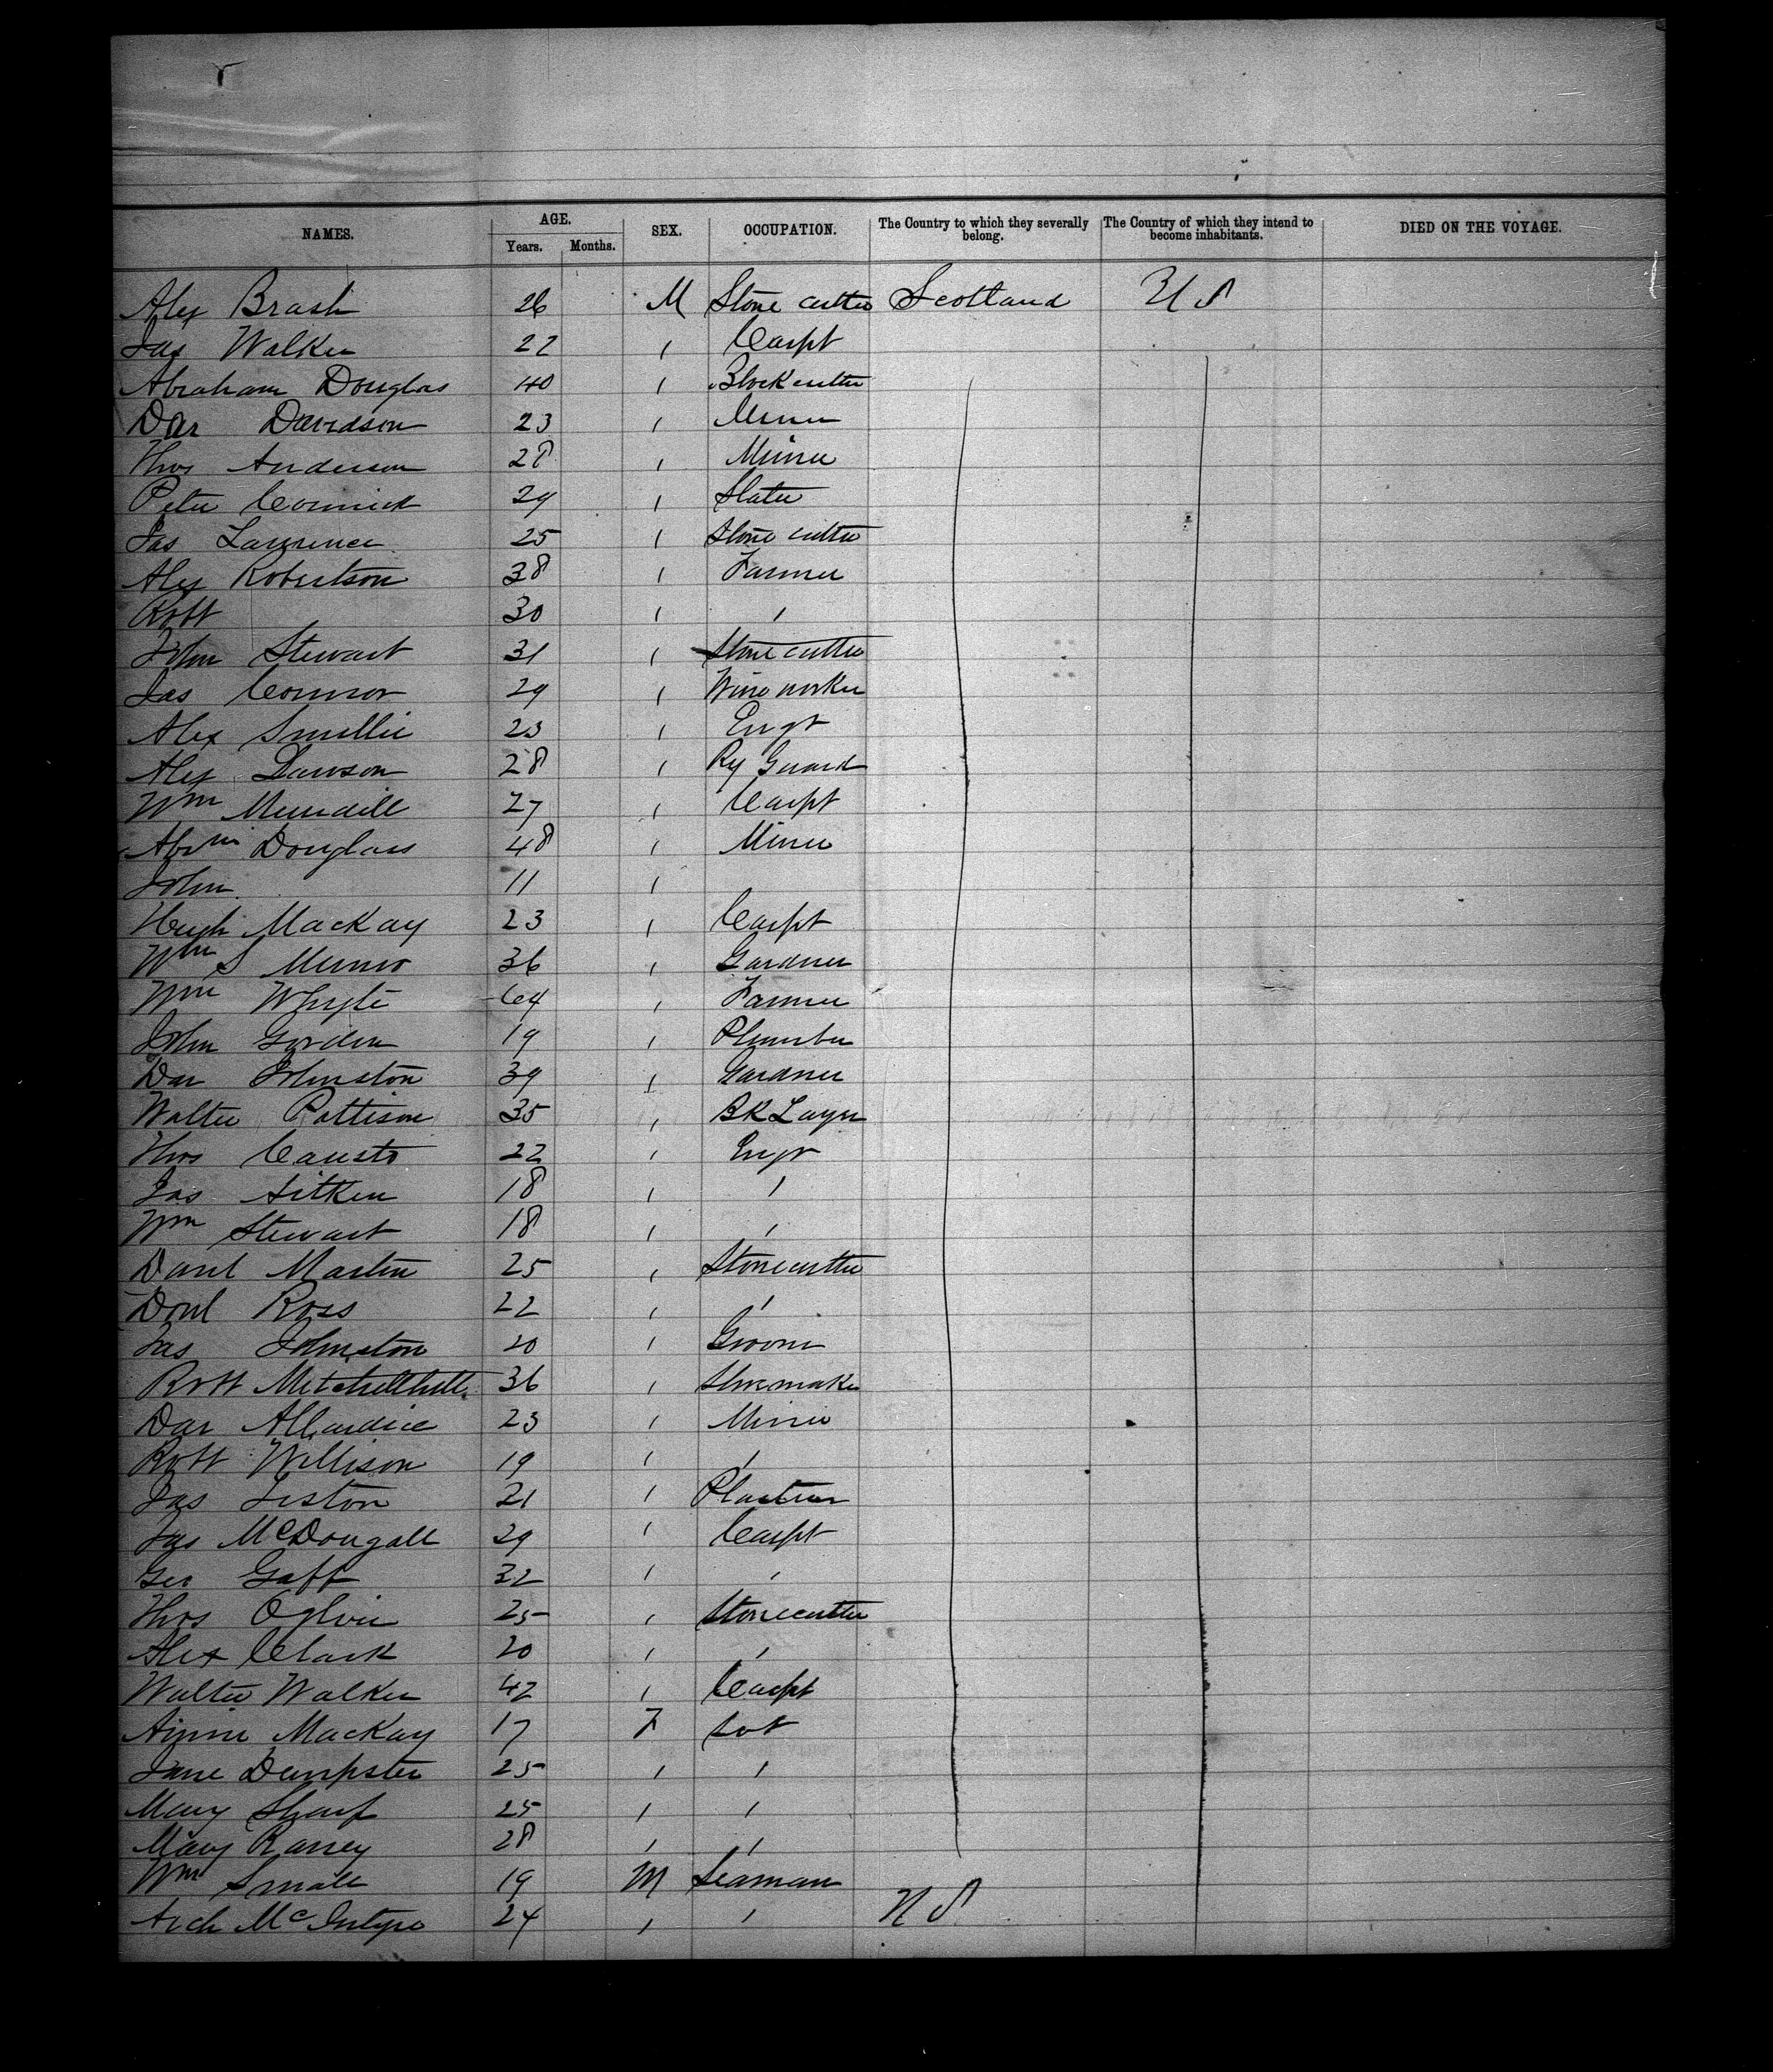 NAMES. AGE. SEX. OCCUPATION. The Country to which they severally belong. The Country of which they intend to become inhabitants. DIED ON THE VOYAGE.
Years. Months.
Alex Brash 26 M Stone cutter Scotland U S
Jas Walker 22 " Carpt
Abraham Douglas 40 " Block cutter
Dav Davidson 23 " Miner
Thos Anderson 28 " Miner
Peter Cormick 29 " Slater
Jas Lawrence 25 " Stone cutter
Alex Robertson 38 " Farmer
Robt 30 " "
John Stewart 31 " Stone cutter
Jas Connor 29 " Wire worker
Alex Smellie 23 " Engr
Alex Lawson 28 " Ry Guard
Wm Mundell 27 " Carpt
Abrm Douglas 48 " Miner
John 11 "
Hugh MacKay 23 " Carpt
Wm S Munro 36 " Gardner
Wm Whyte 64 " Farmer
John Gordon 19 " Plumber
Dav Johnston 39 " Gardner
Walter Pattison 35 " BK Layer
Thos 22 " Engr
Jas Aitken 18 " "
Wm Stewart 18 " "
Danl Martin 25 " Stonecutter
Donl Ross 22 " "
Jas Johnston 20 " Groom
Robt Mitchellhill 36 " Shoemaker
Dav Allardice 23 " Miner
Robt Willison 19 " "
Jas Liston 21 " Plasterer
Jas McDougall 29 " Carpt
Geo Gaff 32 " "
Thos Ogilvie 25 " Stonecutter
Alex Clark 20 " "
Walter Walker 42 " Carpt
Annie MacKay 17 F Svt
Jane Dempster 25 " "
Mary Sharp 25 " "
Mary Raney 28 " "
Wm Small 19 M Seaman
Arch McIntyre 24 " " U S